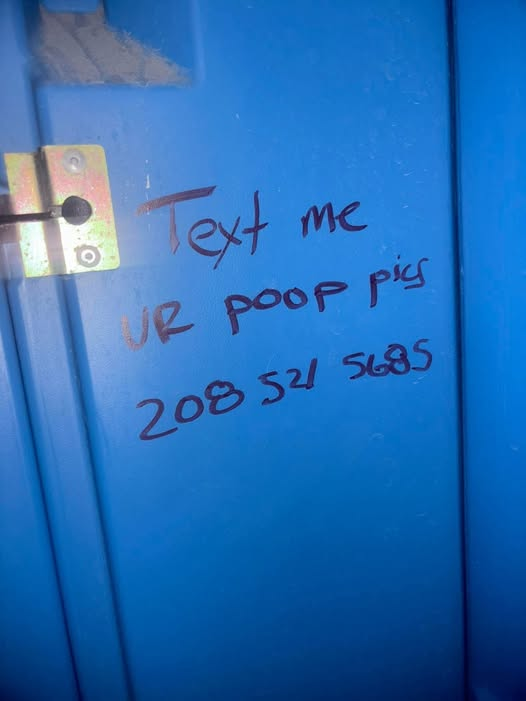 Text me
UR POOP pics
208 521 5685